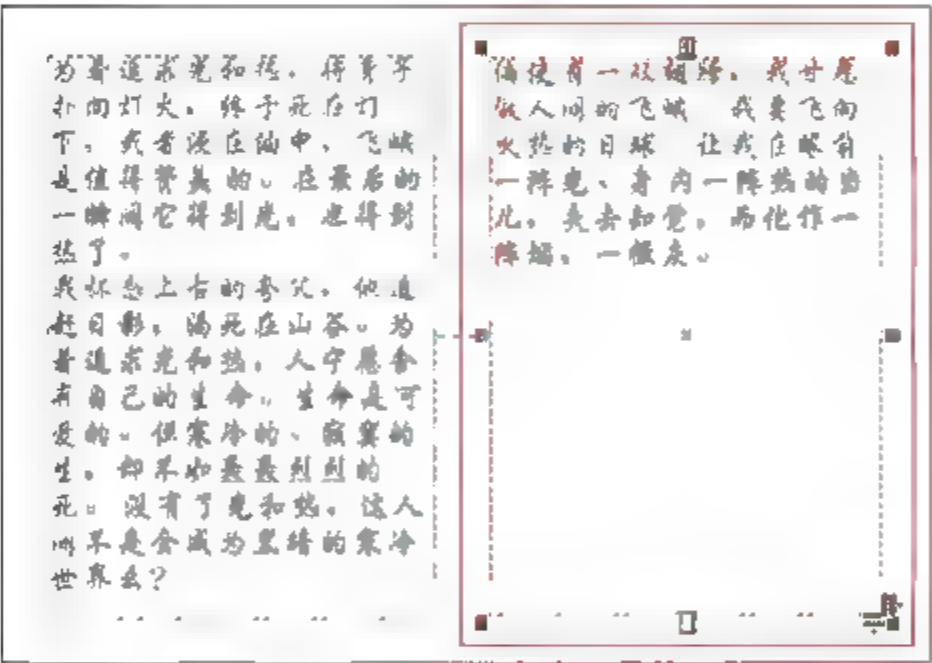 为着追求光和热，将身子
扑向灯火，终于死在灯
下，或者浸在油中，飞蛾
是值得赞美的。在最后的
一瞬间它得到光，也得到
热了。
我怀念上古的夸父，他追
赶日影，渴死在山谷。为
着追求光和热，人宁愿舍
有自己的生命。生命是可
爱的。但寒冷的、寂寞的
生，却不如轰轰烈烈的
死。没有了光和热，这人
间不是会成为黑暗的寒冷
世界么？
倘使有一双翅膀，我甘愿
做人间的飞蛾 我要飞向
火热的日球 让我在眼前
一阵光、身内一阵热的当
儿，失去知觉，而化作一
阵烟，一撮灰。